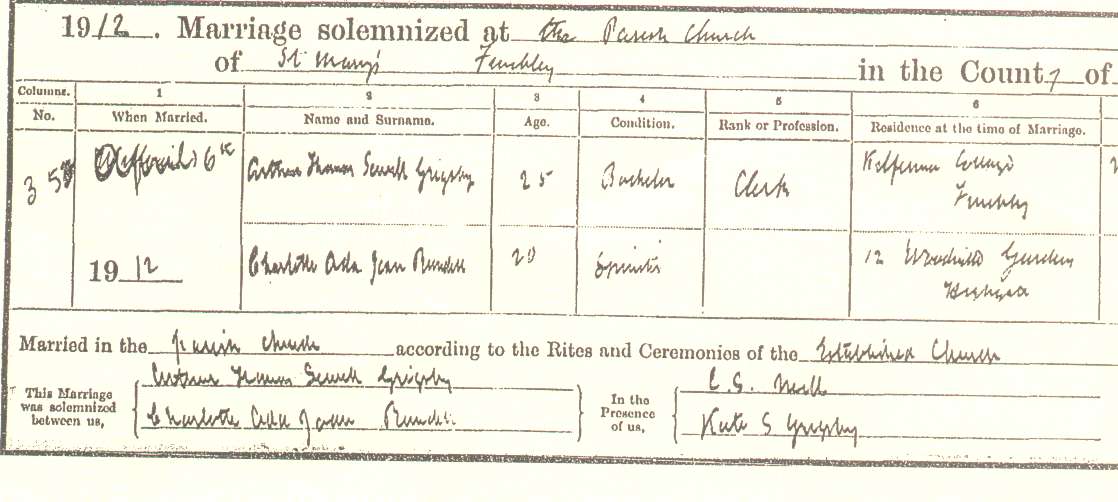 1912. Marriage solemnized at the Parish Church
of St Mary's Finchley in the County of
Columns. 1 2 3 4 5 6
No. When Married. Name and Surname. Age. Condition. Rank or Profession. Residence at the time of Marriage.
35 April 6th Arthur Thomas Sewell Grigsby 25 Bachelor Clerk Finchley
1912 Charlotte Ada Jean 20 Spinster 12 Gardens
Married in the parish church according to the Rites and Ceremonies of the Established Church
This Marriage was solemnized between us, Arthur Thomas Sewell Grigsby In the Presence of us, C. S.
Charlotte Ada Jean Kate S Grigsby